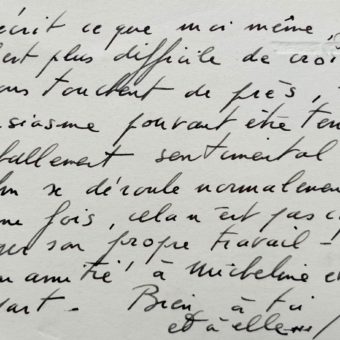 écrit ce que moi même,
est plus difficile de croi
ous touchent de près,
siasme pouvant être ten
ballement sentimental
lm se déroule normalemen
me fois, cela n'est pas
son propre travail -
amitié à Micheline et
art - Bien à toi
et à elle